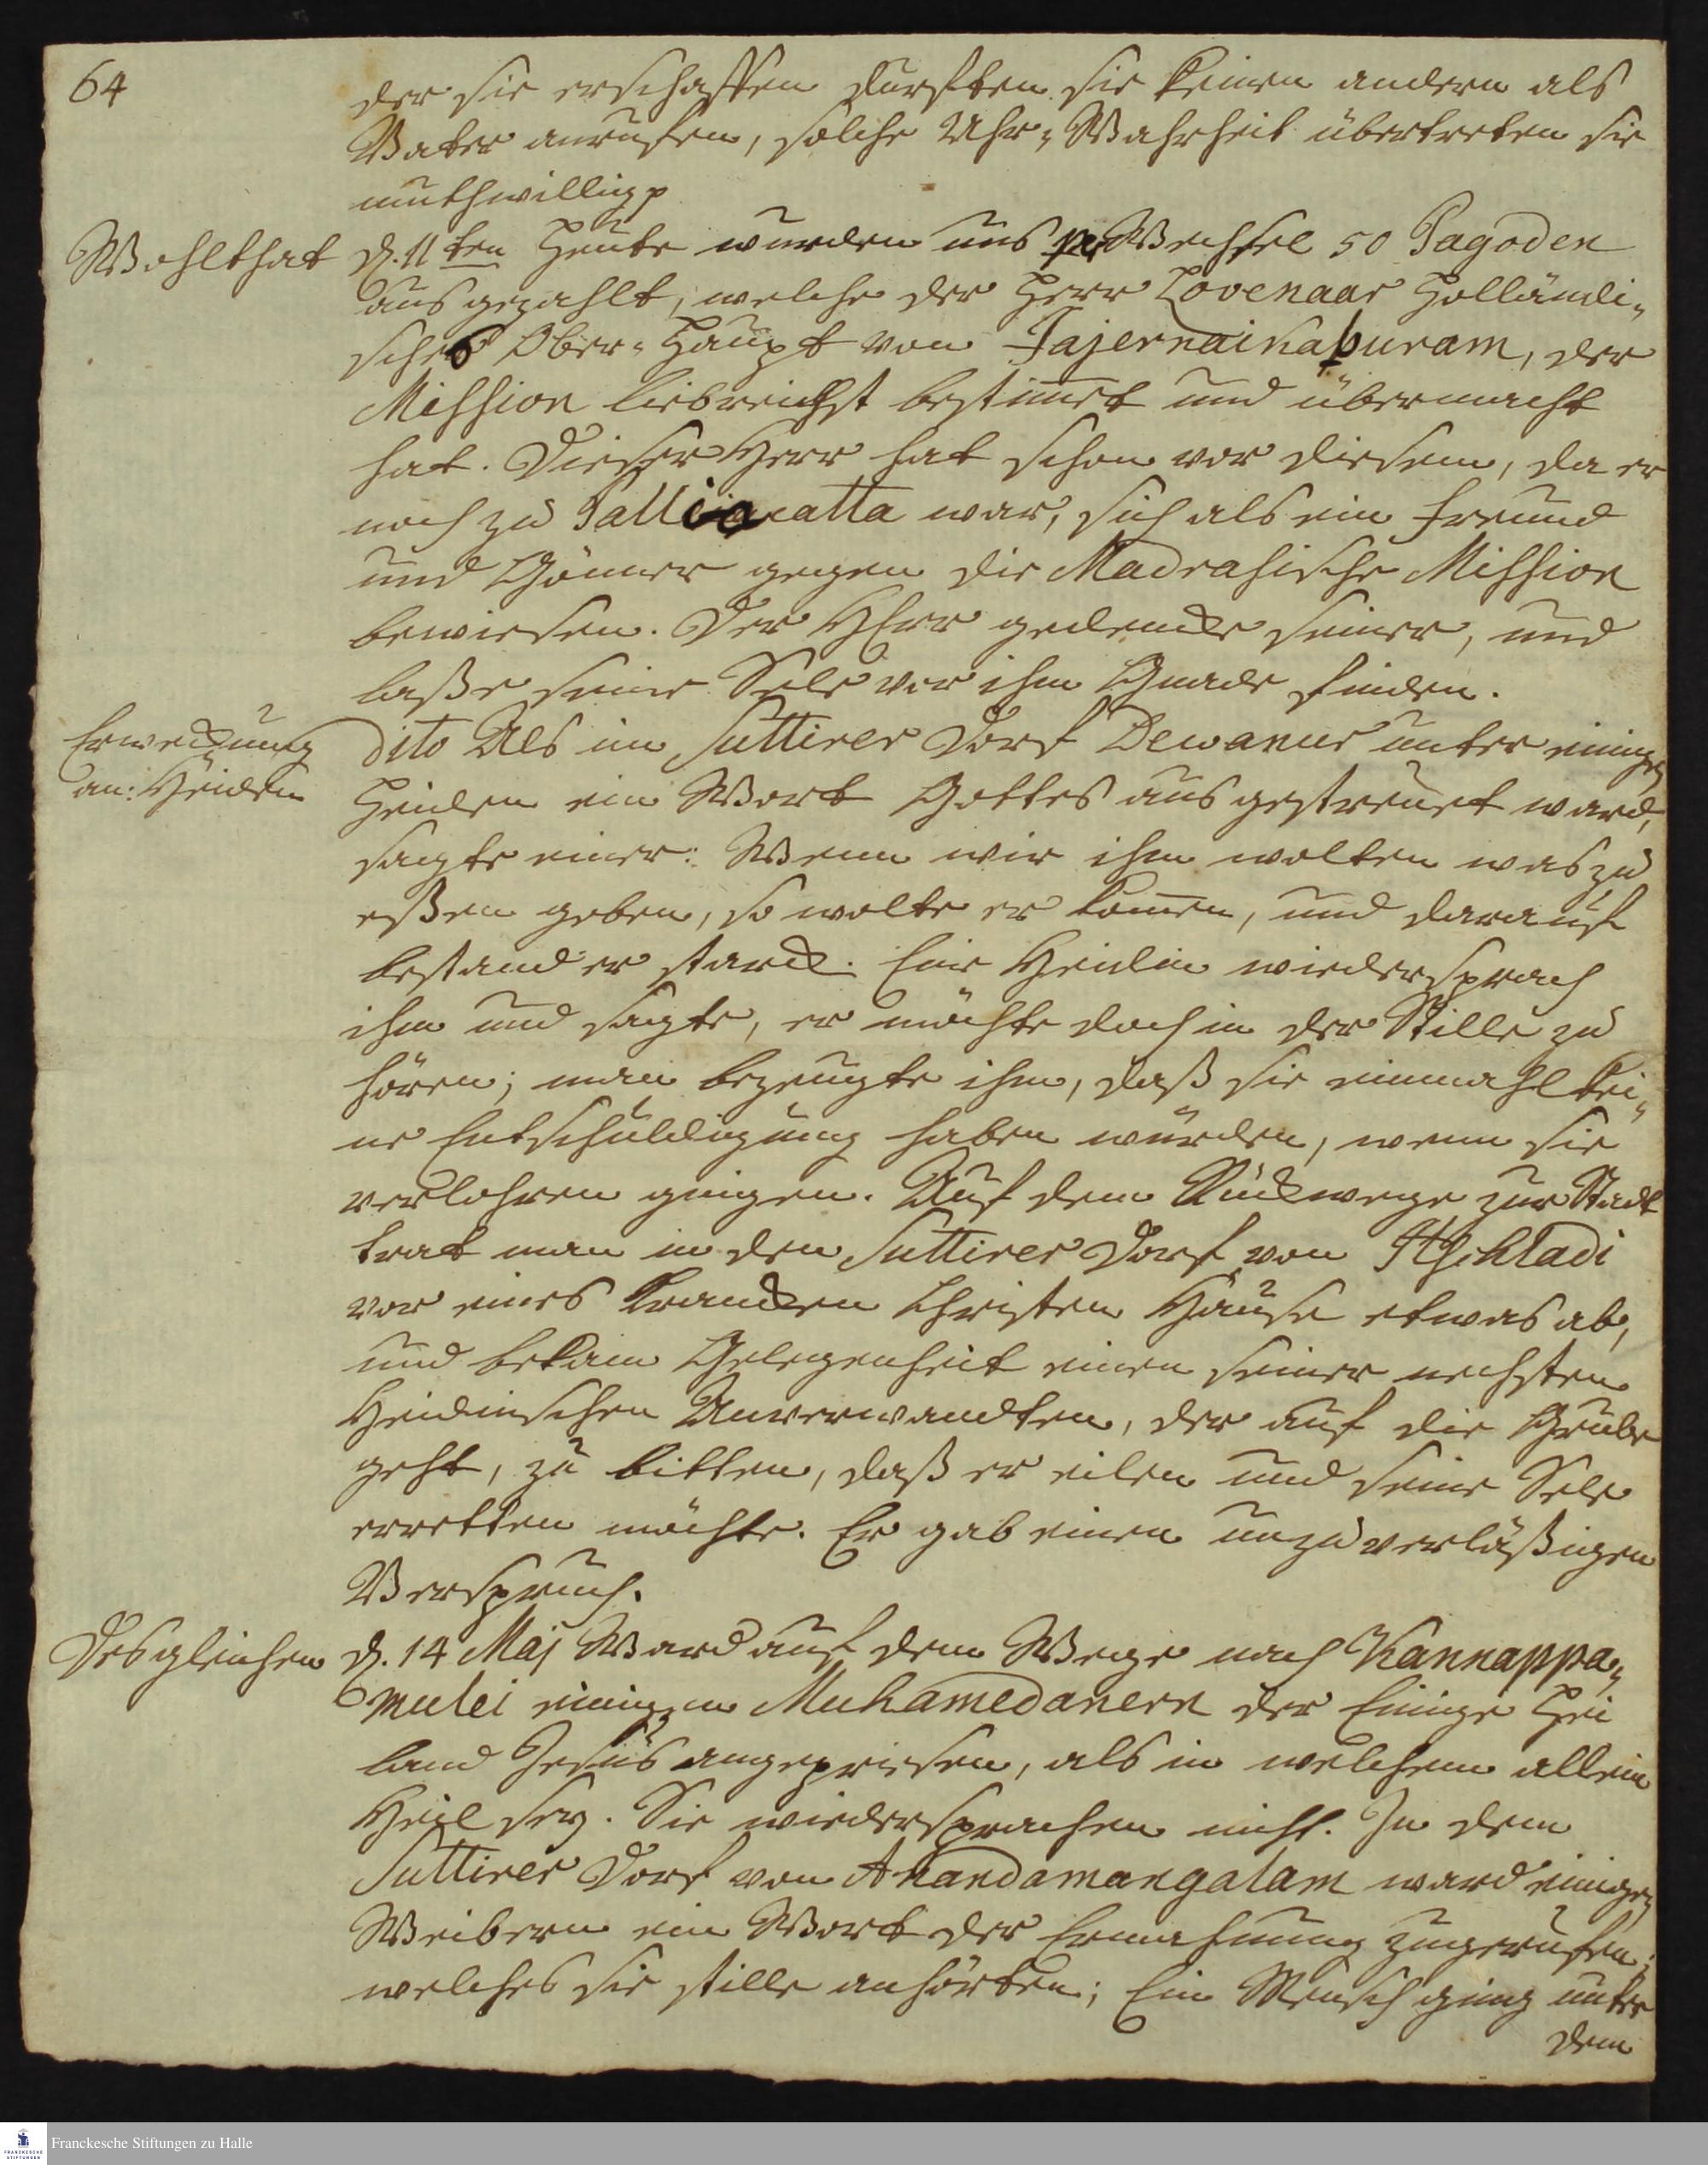 64
der sie erschaffen durften sie keinen andern als
Vater anrufen, solche Uhr-Wahrheit übertreten sie
muthwillig p
Wohlthat
d. 11ten Heute wurden uns per Wechsel 50 Pagoden
ausgezahlt, welche der Herr Lovenaar Holländi-
sches Ober-Haupt von Jajernaikapuram, der
Mission liebreichst bestimet und übermacht
hat. Dieser Herr hat schon vor diesem, da er
noch zu Palliacatta war, sich als ein Freund
und Gönner gegen die Madrasische Mission
bewiesen. Der HErr gedencke seiner, und
laße seine Sele vor ihm Gnade finden.
Erweckung
an: Heiden
dito Als im Suttirer Dorf Dewanur unter einigen
Heiden ein Wort Gottes ausgestreuet ward,
sagte einer: Wenn wir ihm wolten was zu
eßen geben, so wolte er komen, und darauf
bestand er starck. Eine Heidin wiedersprach
ihm und sagte, er möchte doch in der Stille zu
hören; man bezeugte ihm, daß sie einmahl kei-
ne Entschuldigung haben würden, wenn sie
verlohren gingen. Auf dem Rückwege zur Stadt
trat man in den Suttirer Dorf von Ittchladi
vor eines Krancken Christen Hause etwas ab,
und bekam Gelegenheit einen seiner nechsten
Heidnischen Anverwandten, der auf die Grube
geht, zu bitten, daß er eilen und seine Sele
erretten möchte. Er gab einen unzuverläßigen
Verspruch.
Desgleichen
d. 14 Maj Ward auf dem Wege nach Kannappa-
mulei einigen Muhamedanern der Einige Hei
land Jesus angepriesen, als in welchem allein
Heil sey. Sie wiedersprachen nicht. In dem
Suttirer Dorf von Anandamangalam ward einigen
Weibern ein Wort der Ermahnung zugerufen;
welches sie stille anhörten; Ein Mensch ging unter
dem
Franckesche Stiftungen zu Halle